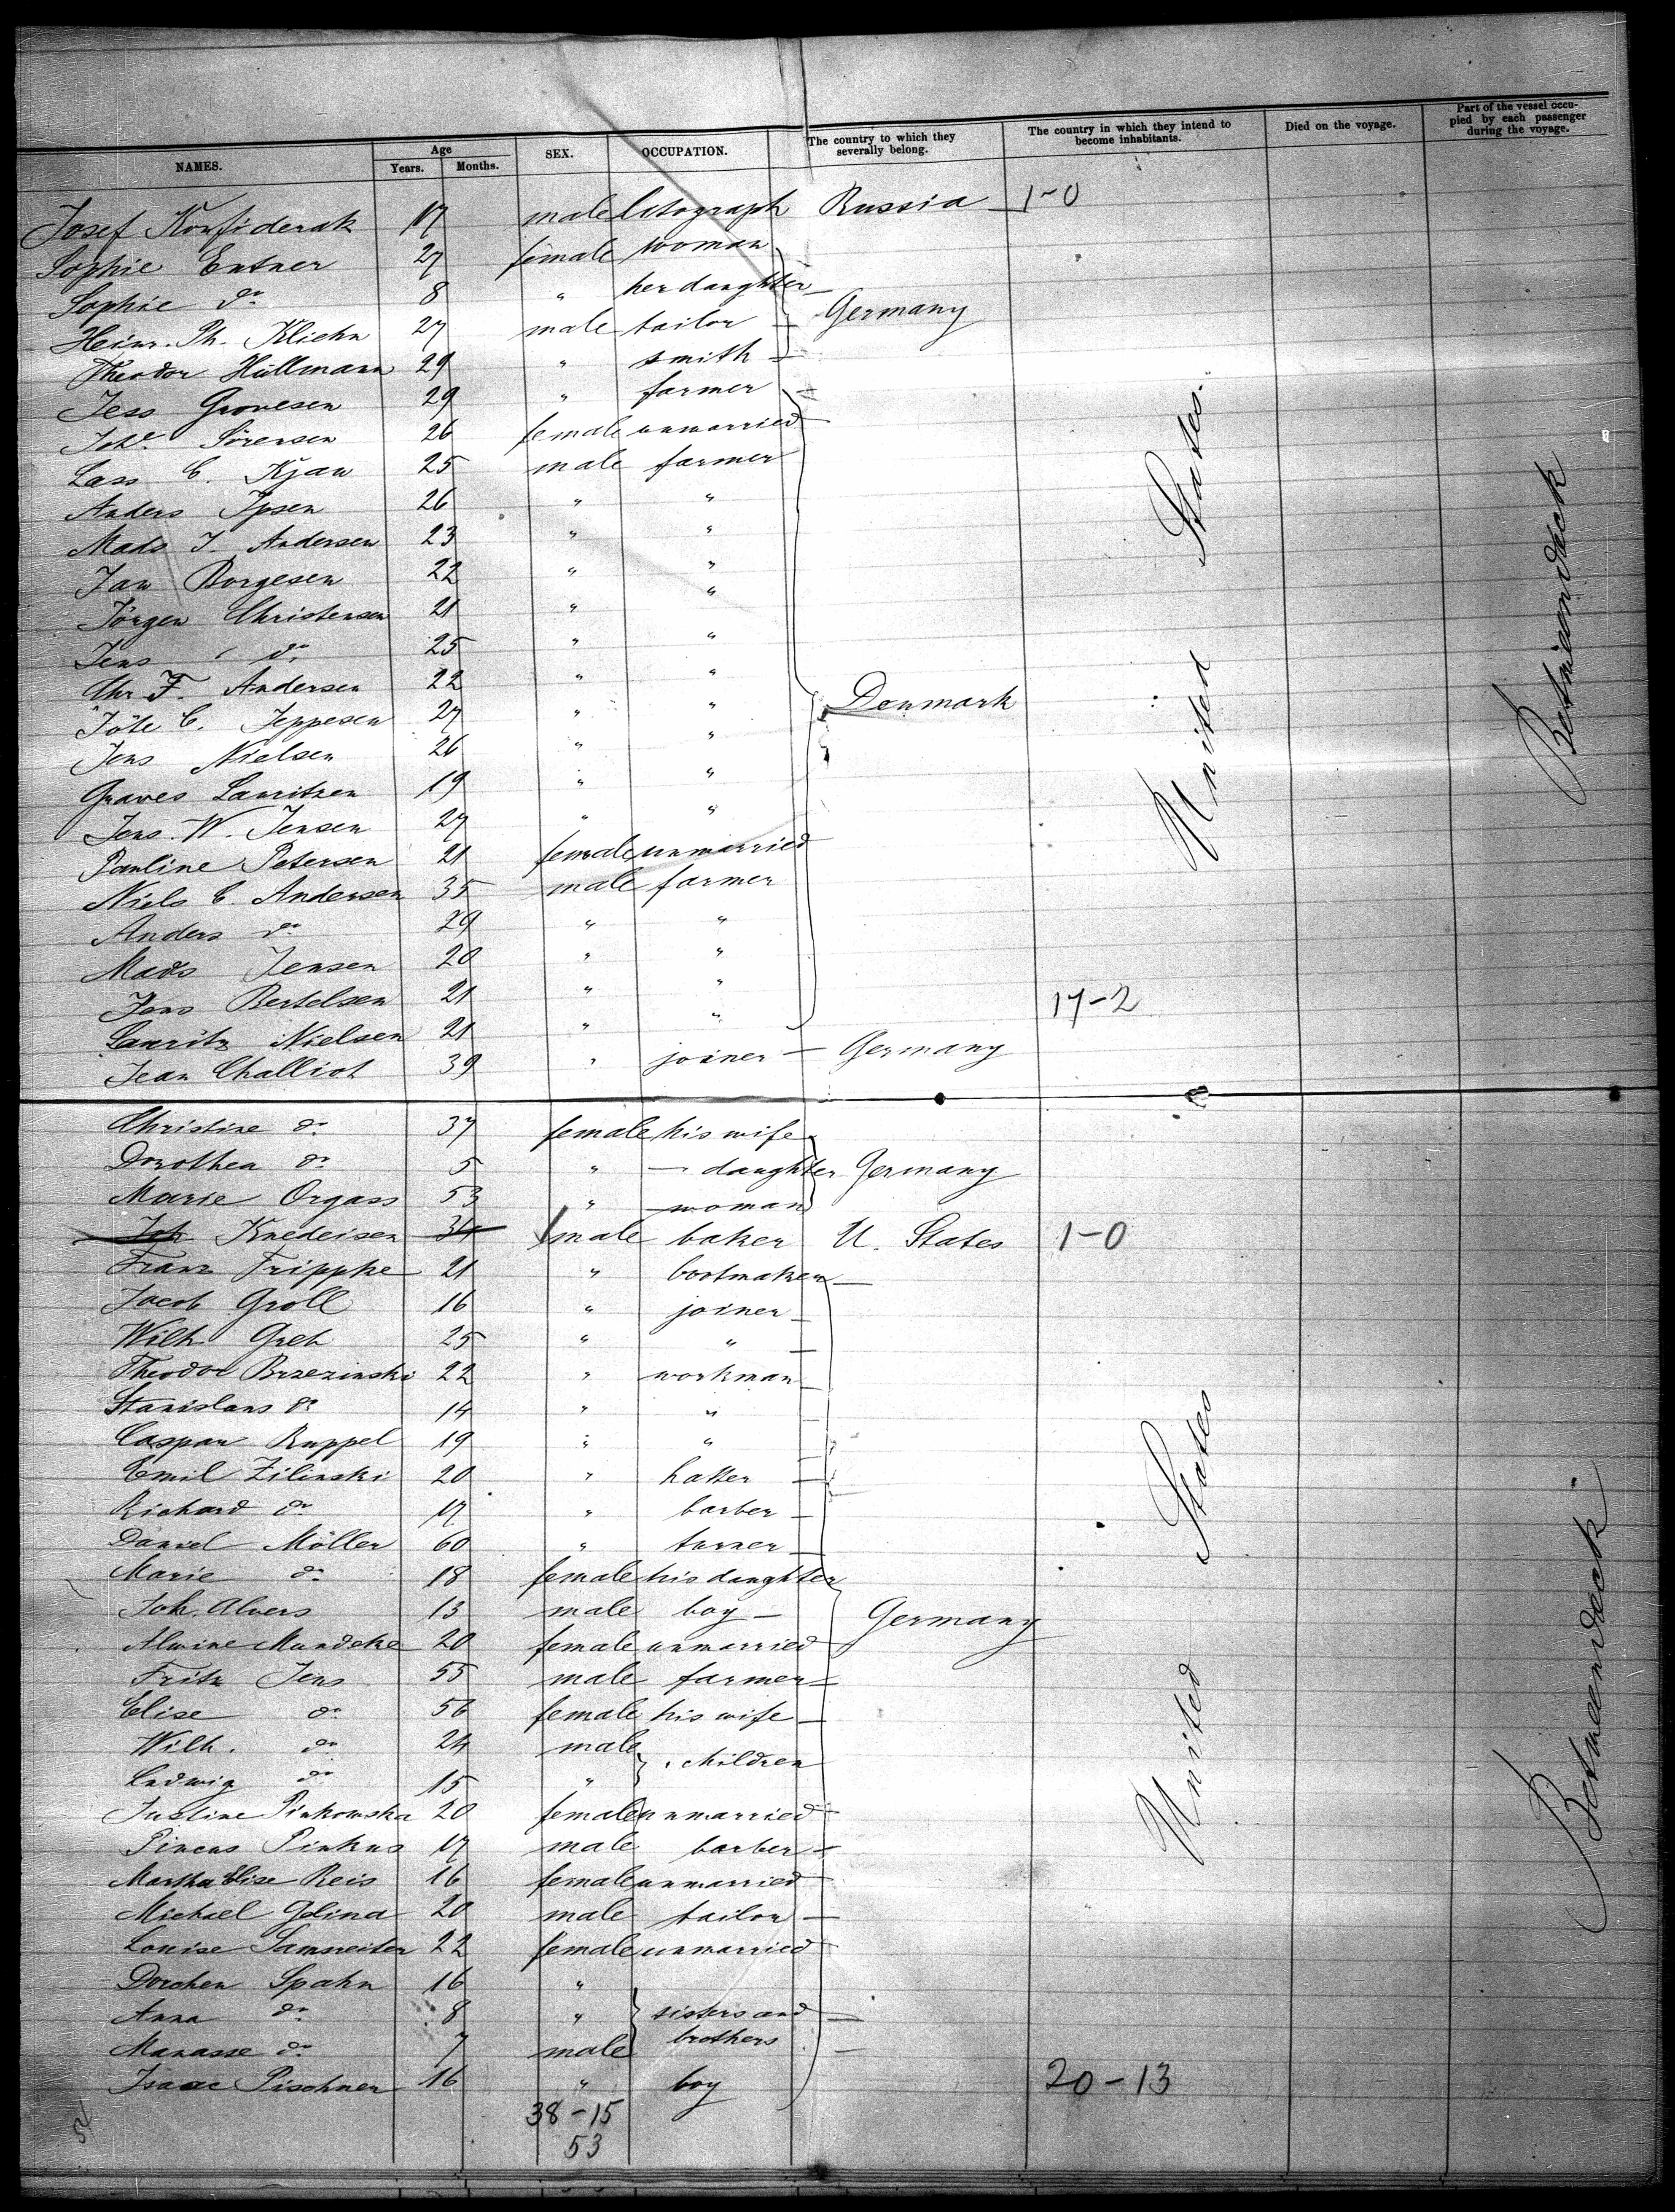 NAMES. Age Years. Months. SEX. OCCUPATION. The country to which they severally belong. The country in which they intend to become inhabitants. Died on the voyage. Part of the vessel occupied by each passenger during the voyage.
Josef Konfiderak 17 male litograph Russia 1-0
Sophie Entner 27 female woman
Sophie do 8 " her daughter
Heinr. Ph. Kliehn 27 male tailor Germany
Theodor Hüllmann 29 " smith
Jess Grovesen 29 " farmer
Johe Sörensen 26 female unmarried
Lass C. Kjaw 25 male farmer
Anders Ipsen 26 " "
Mads J. Andersen 23 " "
Jan Borgesen 22 " "
Jörgen Christensen 21 " "
Jens do 25 " "
Chr. F. Andersen 22 " "
Jöte C. Jeppesen 27 " " Denmark
Jens Nielsen 26 " "
Graves Lauritzen 19 " "
Jens W. Jensen 27 " "
Pauline Petersen 21 female unmarried
Niels C Andersen 35 male farmer
Anders do 29 " "
Mads Jensen 20 " "
Jens Bertelsen 21 " " 17-2
Lauritz Nielsen 21 " "
Jean Challiot 39 " joiner Germany
United States.
Between deck
Christine do 37 female his wife
Dorothea do 5 " — daughter Germany
Marie Orgass 53 " woman
Joh Knedeisen 34 male baker U. States 1-0
Franz Frippke 21 " bootmaker
Jacob Groll 16 " joiner
Wilh Greb 25 " "
Theodor Brzezinski 22 " workman
Stanislaus do 14 " "
Caspar Ruppel 19 " "
Emil Zilinski 20 " hatter
Richard do 17 " barber
Daniel Möller 60 " turner
Marie do 18 female his daughter
Joh. Alvers 13 male boy Germany
Alwine Mundeke 20 female unmarried
Fritz Jens 55 male farmer
Elise do 56 female his wife
Wilh. do 24 male children
Ludwig do 15 "
Justine Pinkowska 20 female unmarried
Pincus Pinkus 17 male barber
Martha Elise Reis 16 female unmarried
Michael Golina 20 male tailor
Louise Samreiter 22 female unmarried
Dorchen Spahn 16 "
Anna do 8 " sisters and
Manasse do 7 male brothers
Isaac Pischner 16 " boy 20-13
38-15
53
United States
Between deck